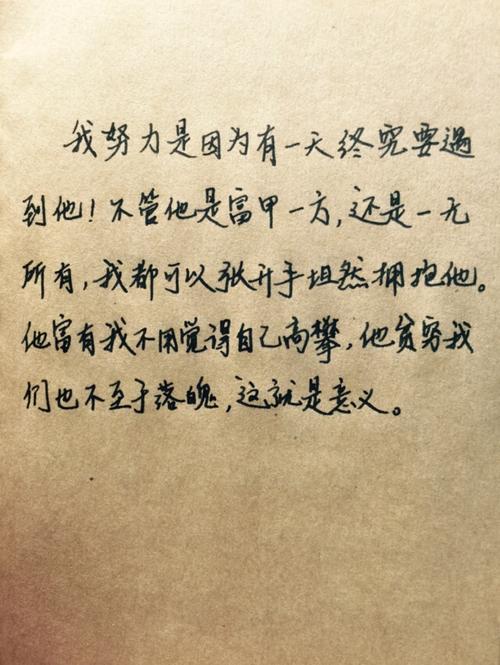 我努力是因为有一天终究要遇
到他！不管他是富甲一方，还是一无
所有，我都可以张开手坦然拥抱他。
他富有我不用觉得自己高攀，他贫穷我
们也不至于落魄，这就是意义。